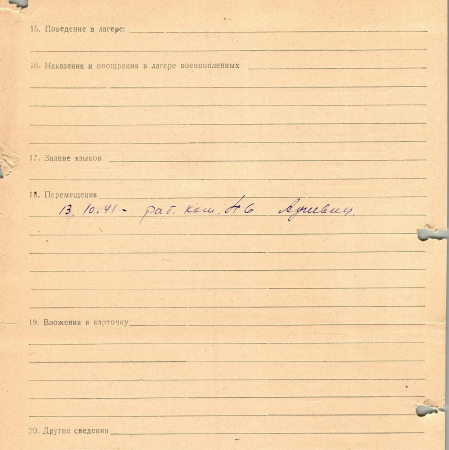 15. Поведение в лагере:
16. Наказания и поощрения в лагере военнопленных
17. Знание языков
18. Перемещения
13.10.41 - раб. ком. №6 Аушвиц.
19. Вложения в карточку
20. Другие сведения